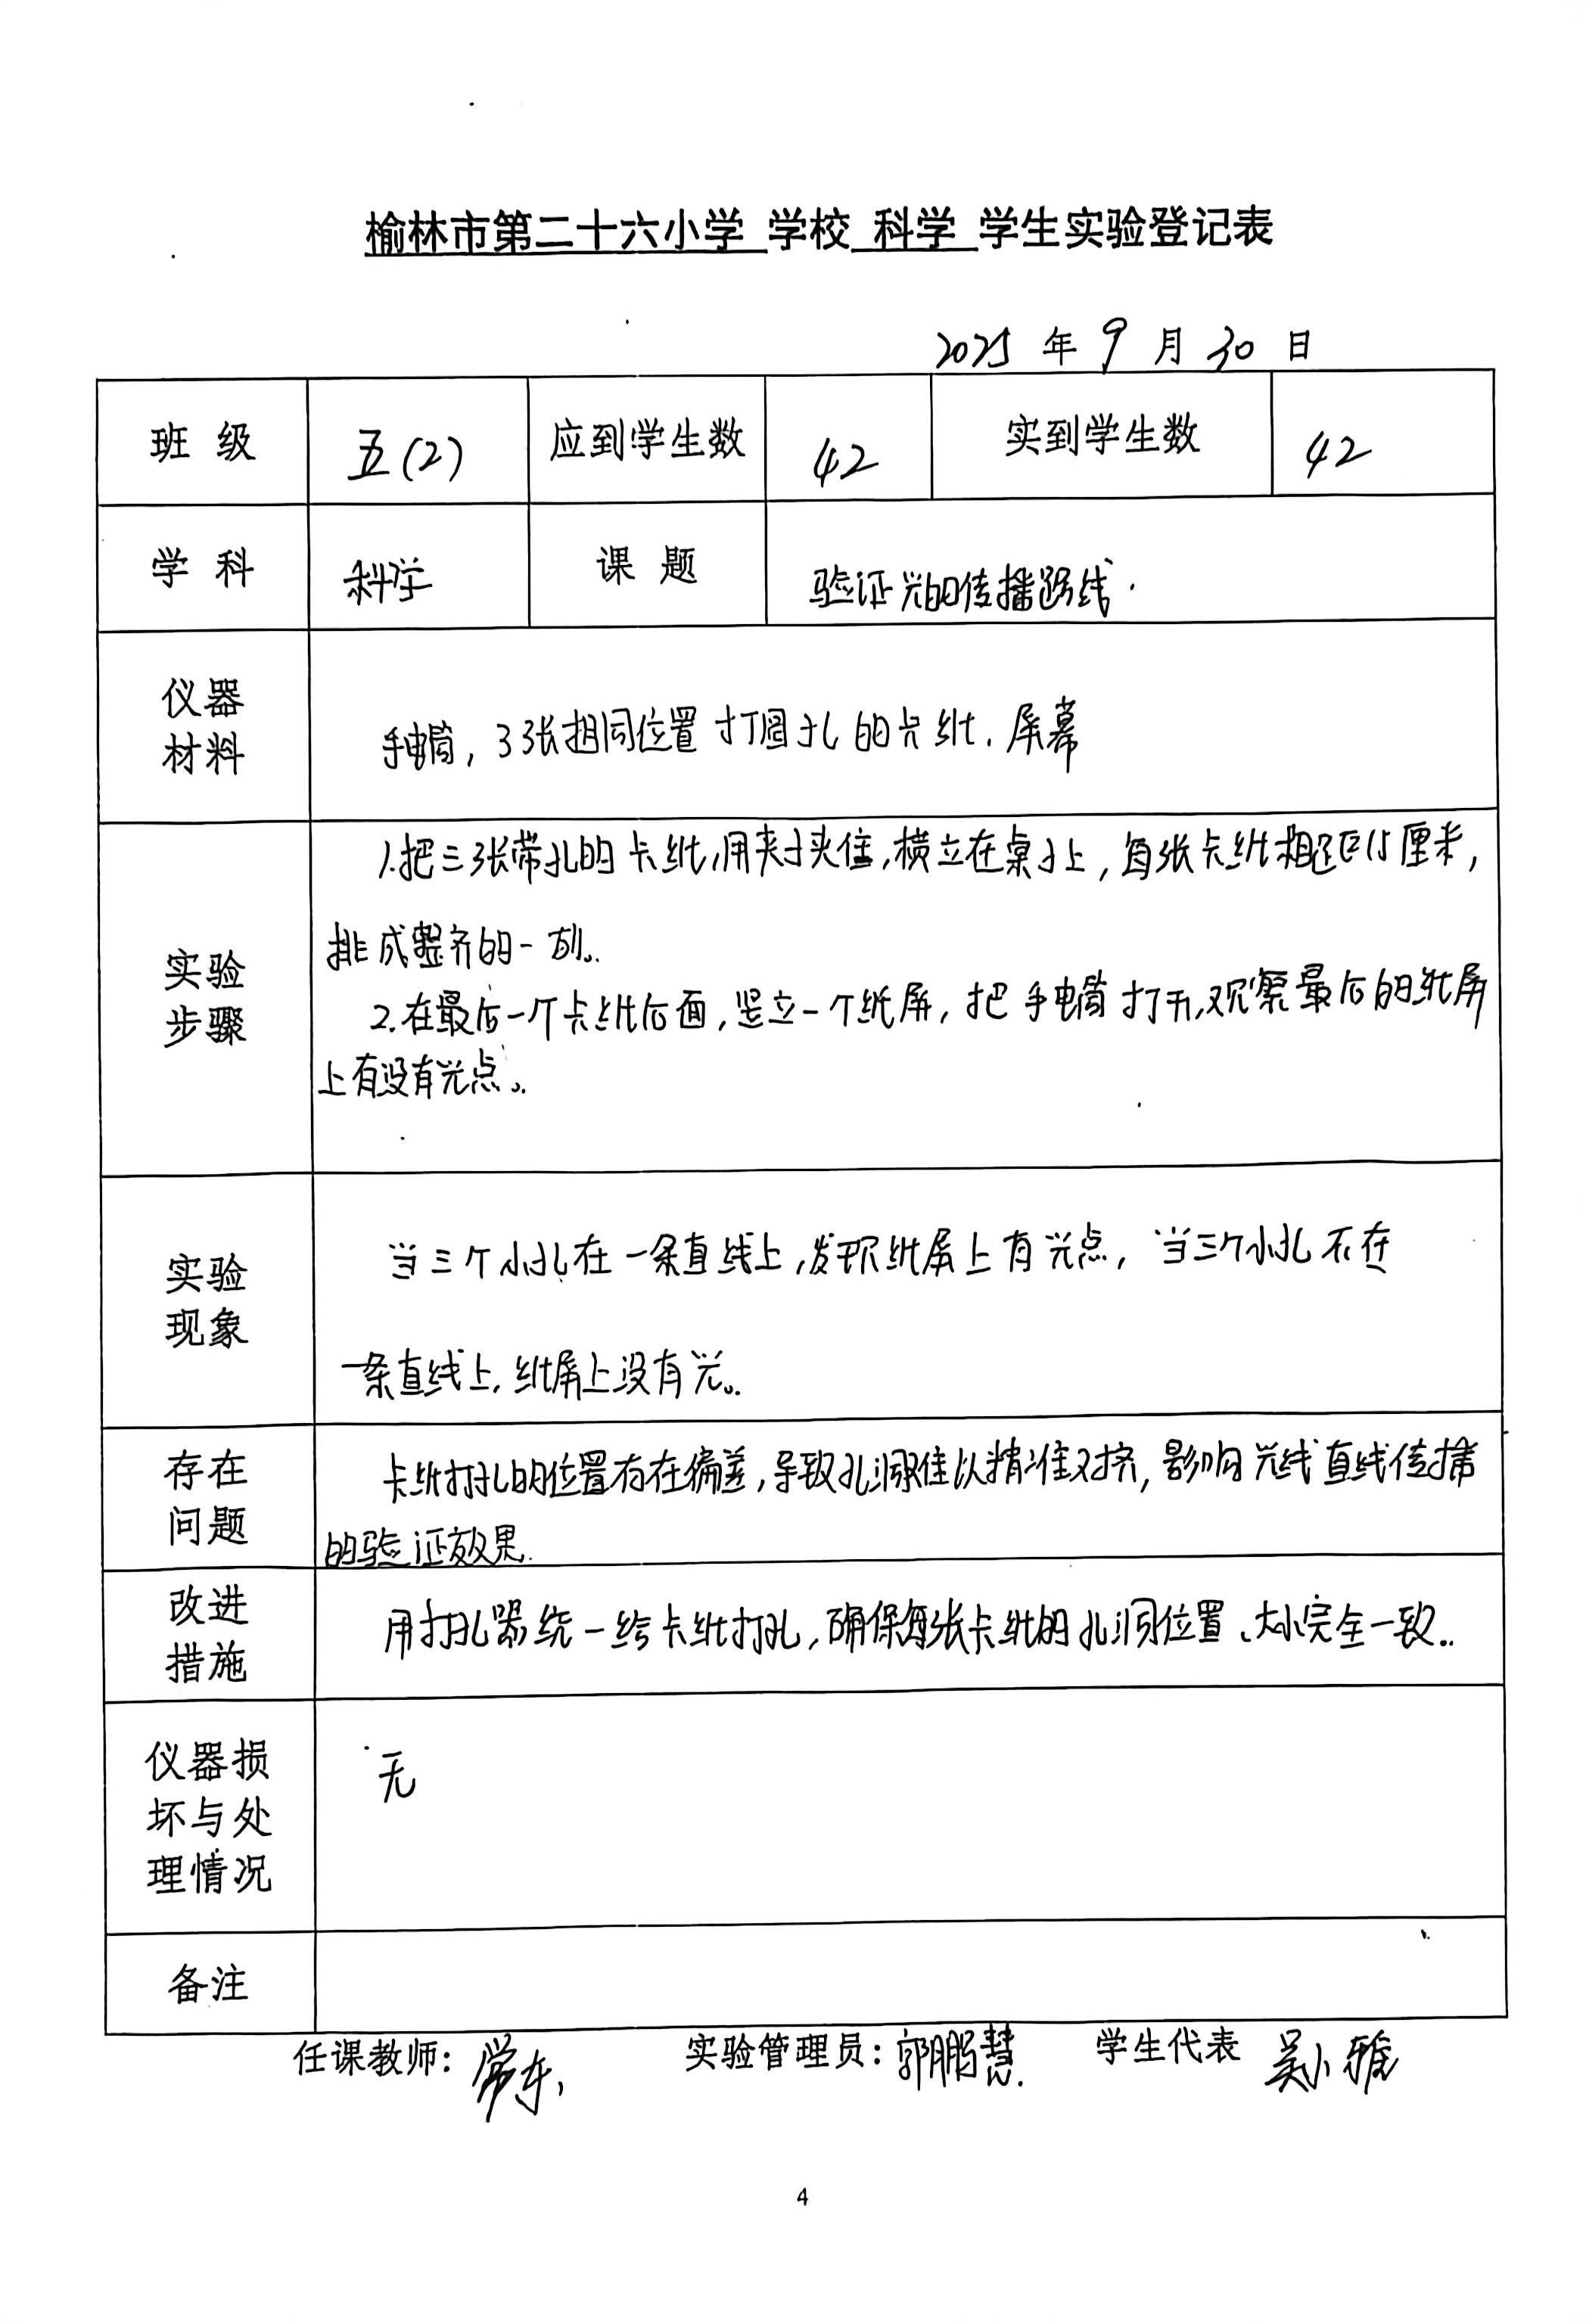 榆林市第二十六小学 学校 科学 学生实验登记表
2025 年 9 月 30 日
班 级 五(2) 应到学生数 42 实到学生数 42
学 科 科学 课 题 验证光的传播路线.
仪器
材料
手电筒，3张相同位置打圆孔的卡纸、屏幕
实验
步骤
1.把三张带孔的卡纸,用夹子夹住,横立在桌子上，每张卡纸相距15厘米，
排成整齐的一列。
2.在最后一个卡纸后面，竖立一个纸屏，把手电筒打开,观察最后的纸屏
上有没有光点。
实验
现象
当三个小孔在一条直线上,发现纸屏上有光点，当三个小孔不在
一条直线上,纸屏上没有光。
存在
问题
卡纸打孔的位置存在偏差,导致孔洞难以精准对齐,影响光线直线传播
的验证效果.
改进
措施
用打孔器统一给卡纸打孔,确保每张卡纸的孔洞位置、大小完全一致.
仪器损
坏与处
理情况
无
备注
任课教师： 实验管理员：郭鹏慧. 学生代表 吴小雅
4